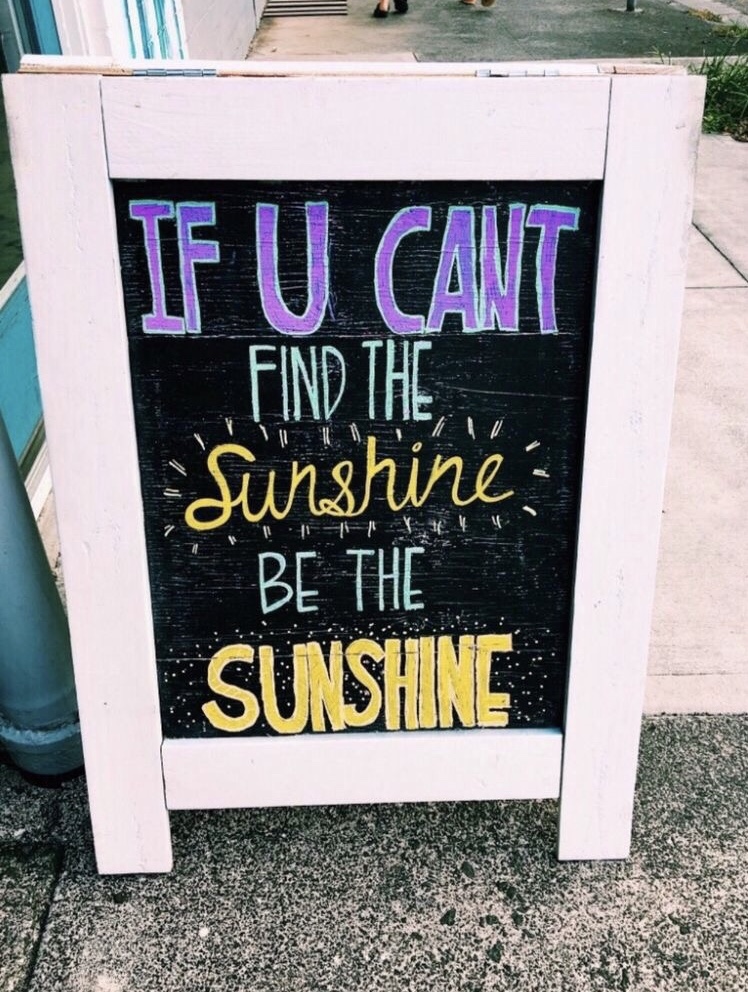 IF U CANT
FIND THE
Sunshine
BE THE
SUNSHINE